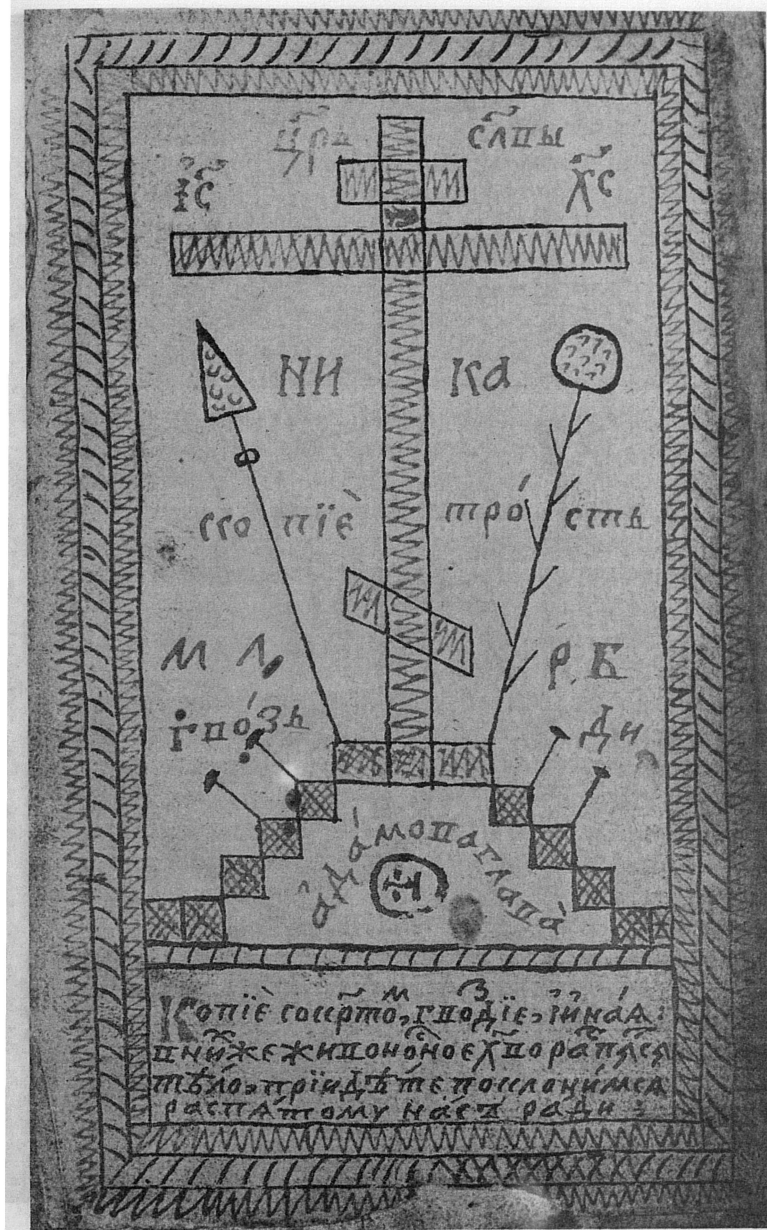 Цр҃ь сл҃вы
І҃с Х҃с
НИ КА
копїѐ тро́сть
М Л Р. Б
гво́зь ди
а҆да́мова глава̀
Копїѐ сокрⷭ҇тоⷨ, гвоⷥдїе, и҆ина́ѧ:
вни́ⷯже живоноⷭ҇ное
тѣ́ло, прїидѣ́те поклони́мсѧ
распѧ́тому на́съ ради :